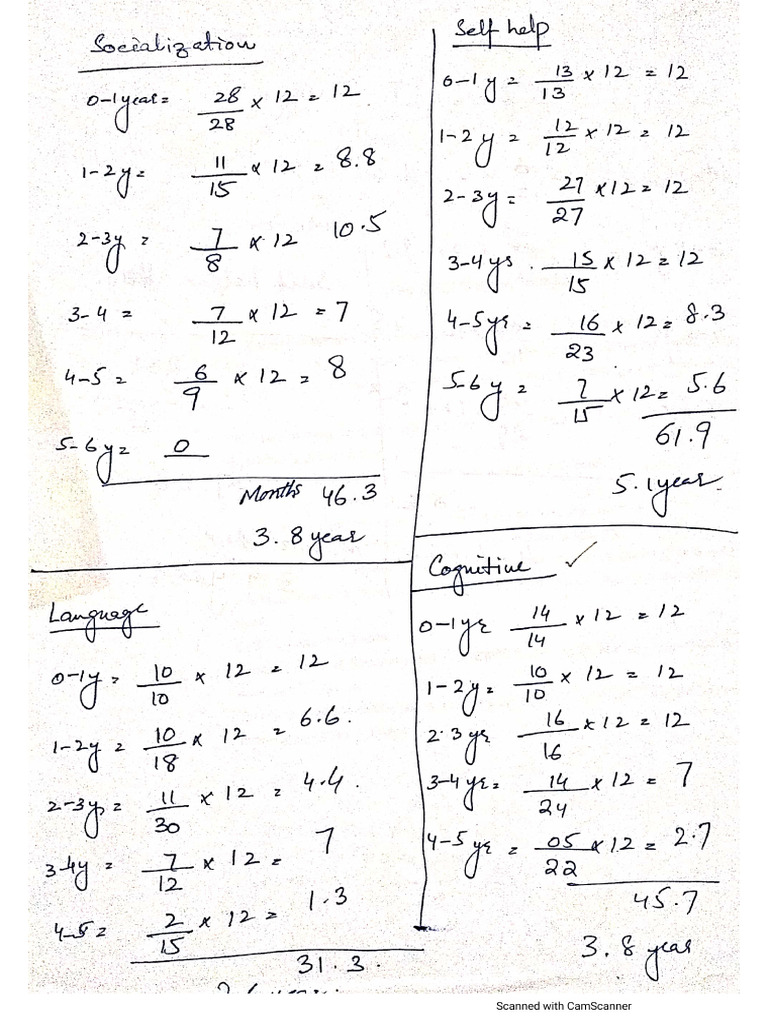 Socialization
0-1year= 28/28 × 12 = 12
1-2y= 11/15 × 12 = 8.8
2-3y = 7/8 × 12 10.5
3-4 = 7/12 × 12 = 7
4-5 = 6/9 × 12 = 8
5-6y= 0
Months 46.3
3.8year
Self help
0-1y = 13/13 × 12 = 12
1-2y = 12/12 × 12 = 12
2-3y= 27/27 × 12 = 12
3-4ys. 15/15 × 12 = 12
4-5yr = 16/23 × 12 = 8.3
5-6y = 7/15 × 12 = 5.6
61.9
5.1year
Language
0-1y = 10/10 × 12 = 12
1-2y = 10/18 × 12 = 6.6.
2-3y= 11/30 × 12 = 4.4.
3-4y = 7/12 × 12 = 7
4-5= 2/15 × 12 = 1.3
31.3.
Cognitive ✓
0-1yr 14/14 × 12 = 12
1-2y= 10/10 × 12 = 12
2.3yr 16/16 × 12 = 12
3-4yr= 14/24 × 12 = 7
4-5yr = 05/22 × 12 = 2.7
45.7
3.8 year
Scanned with CamScanner